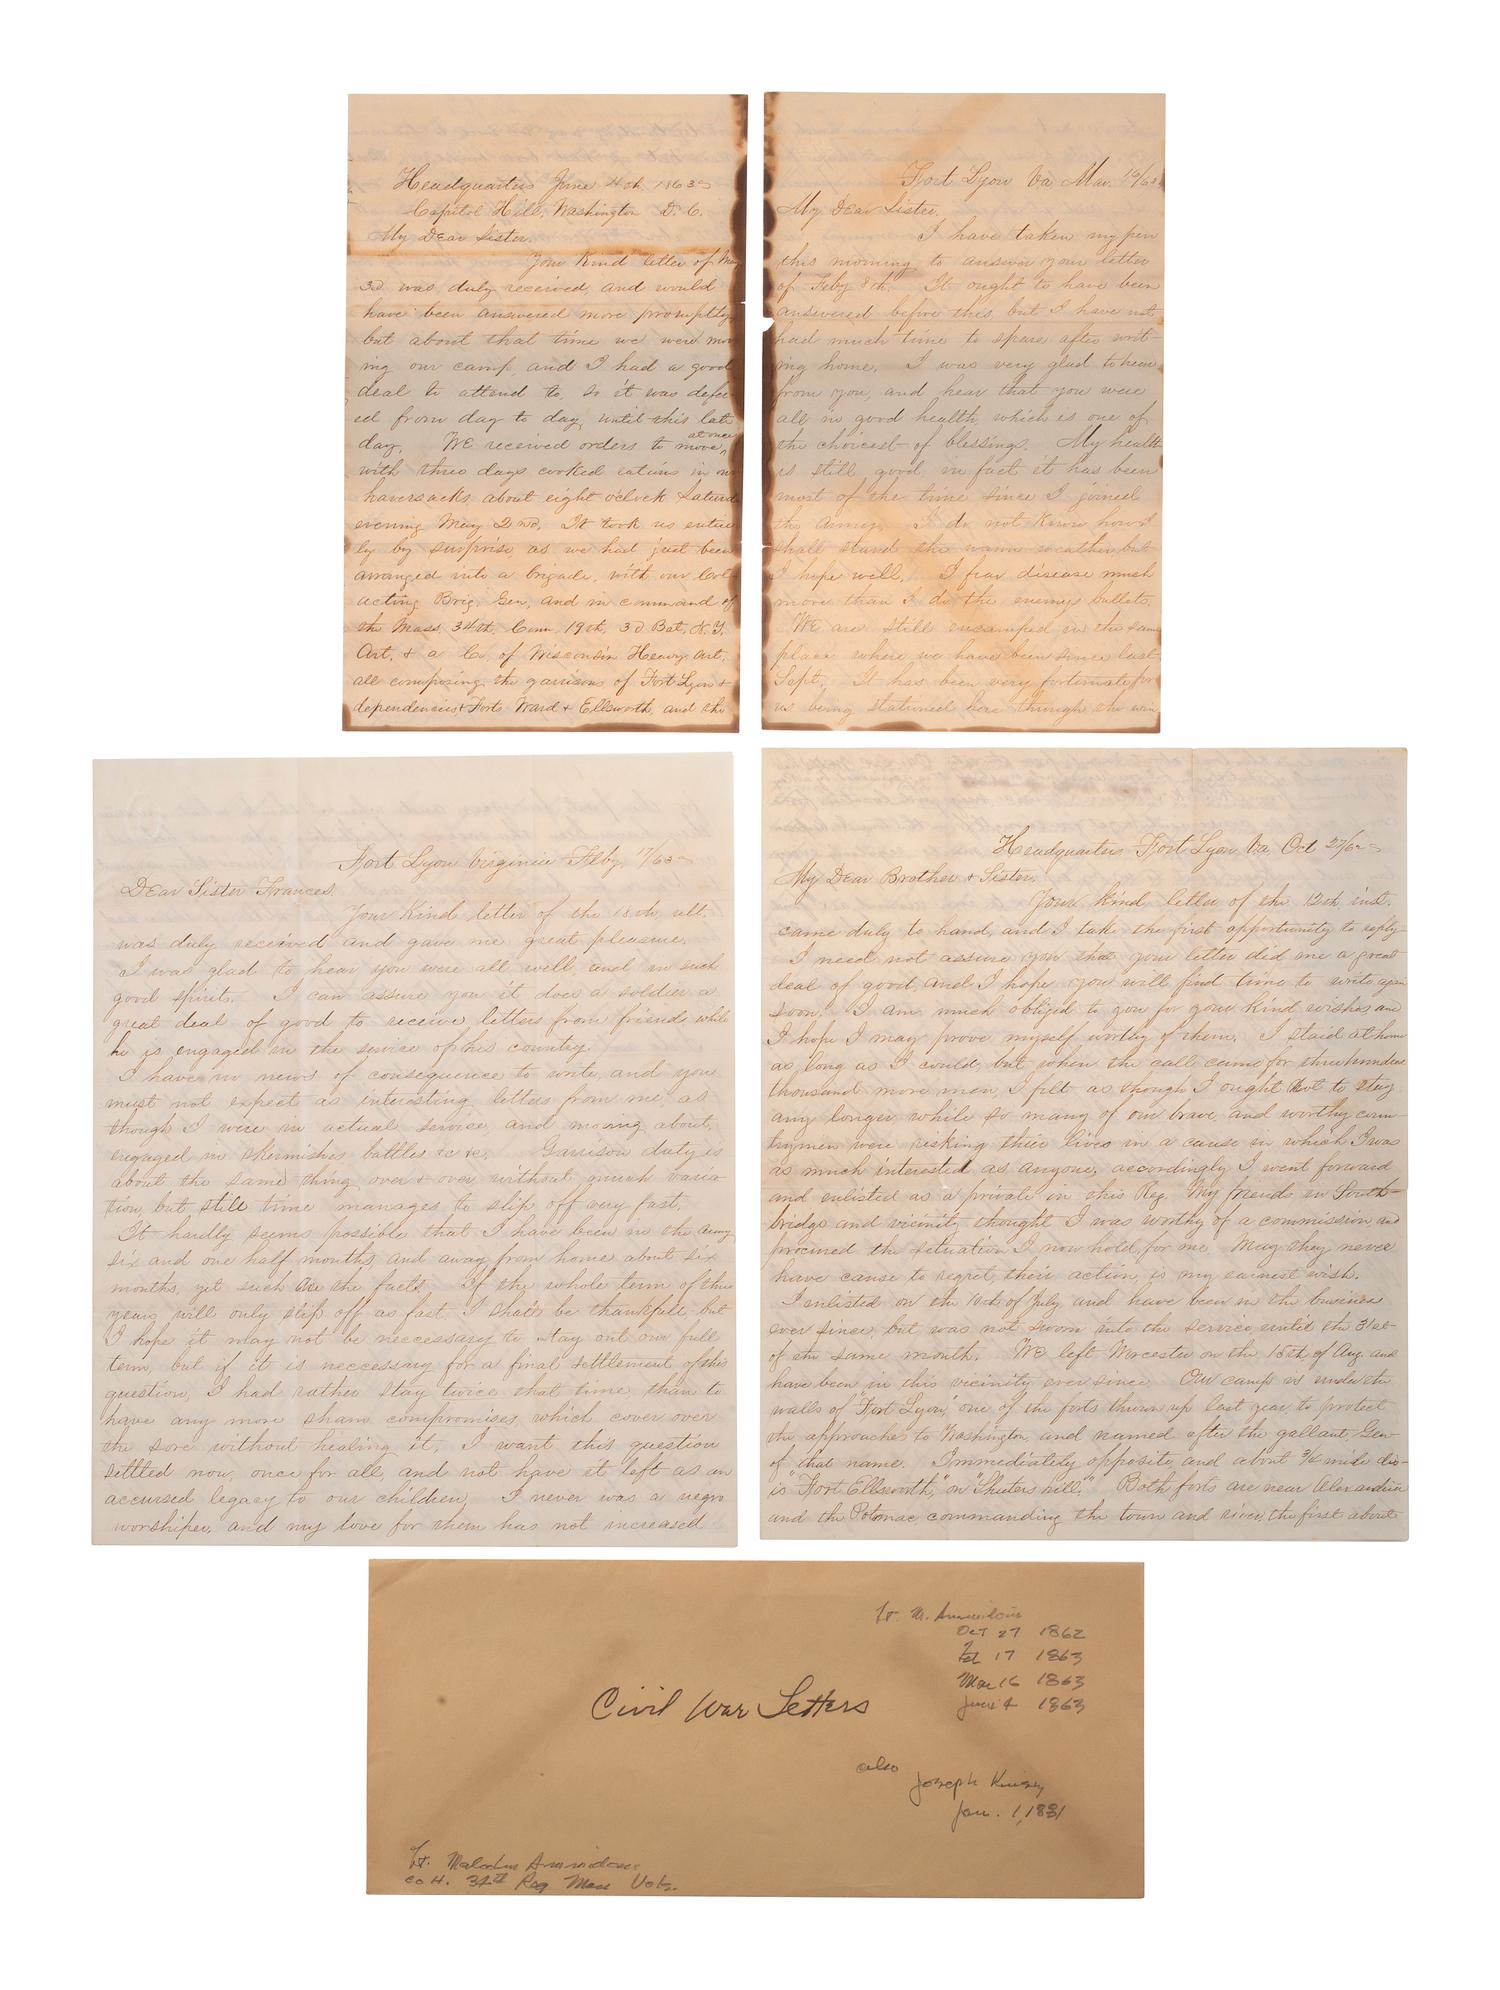 Headquarters June 4th 1863
Capitol Hill, Washington D. C.
My Dear Sister.
Your kind letter of May
3d was duly received, and would
have been answered more promptly,
but about that time we were mov
ing our camp, and I had a good
deal to attend to, so it was defer
ed from day to day, until this late
day. We received orders to move, at once
with three days cooked rations in our
haversacks about eight o'clock Saturd
evening May 2nd. It took us entire
ly by surprise, as we had just been
arranged into a brigade, with our Col.
acting Brig. Gen, and in command of
the Mass. 34th, Conn. 19th, 3d Bat, N.Y.
Art, & a Co. of Wisconsin Heavy Art,
all composing the garrisons of Fort Lyon &
dependencies & Forts Ward & Ellsworth, and the
Fort Lyon Va Mar. 16/63
My Dear Sister.
I have taken my pen
this morning to answer your letter
of Feby 8th. It ought to have been
answered before this, but I have not
had much time to spare after writ-
ing home. I was very glad to hear
from you, and hear that you were
all in good health, which is one of
the choicest of blessings. My health
is still good, in fact it has been
most of the time since I joined
the army. I do not know how I
shall stand the warm weather but
I hope well. I fear disease much
more than I do the enemys bullets.
We are still encamped in the same
place where we have been since last
Sept. It has been very fortunate for
us being stationed here through the win
Fort Lyon Virginia Feby. 17/63
Dear Sister Frances.
Your kind letter of the 18th ult.
was duly received and gave me great pleasure.
I was glad to hear you were all well, and in such
good spirits. I can assure you it does a soldier a
great deal of good to receive letters from friends while
he is engaged in the service of his country.
I have no news of consequence to write, and you
must not expect as interesting letters from me, as
though I were in actual service, and moving about,
engaged in skirmishes battles &c &c. Garrison duty is
about the same thing over & over, without much varia
tion, but still time manages to slip off very fast.
It hardly seems possible that I have been in the army
six and one half months, and away from home about six
months, yet such are the facts. If the whole term of three
years will only slip off as fast, I shall be thankfull, but
I hope it may not be neccessary to stay out our full
term, but if it is neccessary for a final settlement of this
question, I had rather stay twice that time than to
have any more sham compromises, which cover over
the sore without healing it. I want this question
settled now, once for all, and not have it left as an
accursed legacy to our children. I never was a negro
worshiper, and my love for them has not increased
Headquarters Fort Lyon Va Oct 27/62
My Dear Brother & Sister.
Your kind letter of the 12th inst.
came duly to hand, and I take the first opportunity to reply
I need not assure you that your letter did me a great
deal of good, and I hope you will find time to write again
soon. I am much obliged to you for your kind wishes and
I hope I may prove myself worthy of them. I staid at home
as long as I could, but when the call came for three hundred
thousand more men, I felt as though I ought not to stay
any longer, while so many of our brave and worthy coun-
trymen were risking their lives in a cause in which I was
as much interested as anyone, accordingly I went forward
and enlisted as a private in this Reg. My friends in South-
bridge and vicinity thought I was worthy of a commission, and
procured the situation I now hold, for me. May they never
have cause to regret their action, is my earnest wish.
I enlisted on the 10th of July and have been in the business
ever since, but was not sworn into the service until the 31st
of the same month. We left Worcester on the 15th of Aug. and
have been in this vicinity ever since. Our camp is under the
walls of "Fort Lyon," one of the forts thrown up last year, to protect
the approaches to Washington, and named after the gallant Gen
of that name. Immediately opposite, and about 3/4 mile dis-
is "Fort Ellsworth," on "Shuters hill." Both forts are near Alexandria
and the Potomac, commanding the town and river, the first about
Lt. M. Ammidown
Oct 27 1862
Feb 17 1863
Mar 16 1863
June 4 1863
Civil War Letters
also
Joseph
Jan. 1, 1831
Lt. Malcolm Ammidown
Co H. 34th Reg Mass Vols.